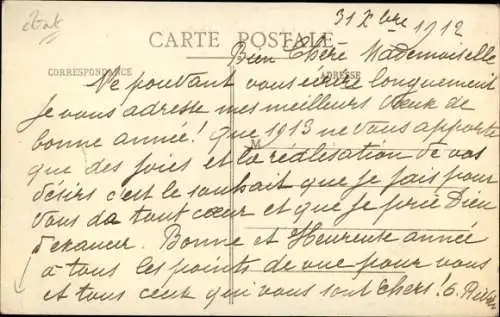 état
31 Xbre 1912
CARTE POSTALE
Bien Chère Mademoiselle
CORRESPONDANCE
ADRESSE
Ne pouvant vous écrire longuement
je vous adresse mes meilleurs vœux de
bonne année! Que 1913 ne vous apporte
M
que des joies et la réalisation de vos
désirs c'est le souhait que je fais pour
vous du tout cœur et que je prie Dieu
d'exaucer. Bonne et Heureuse année
à tous les points de vue pour vous
et tous ceux qui vous sont chers! G.